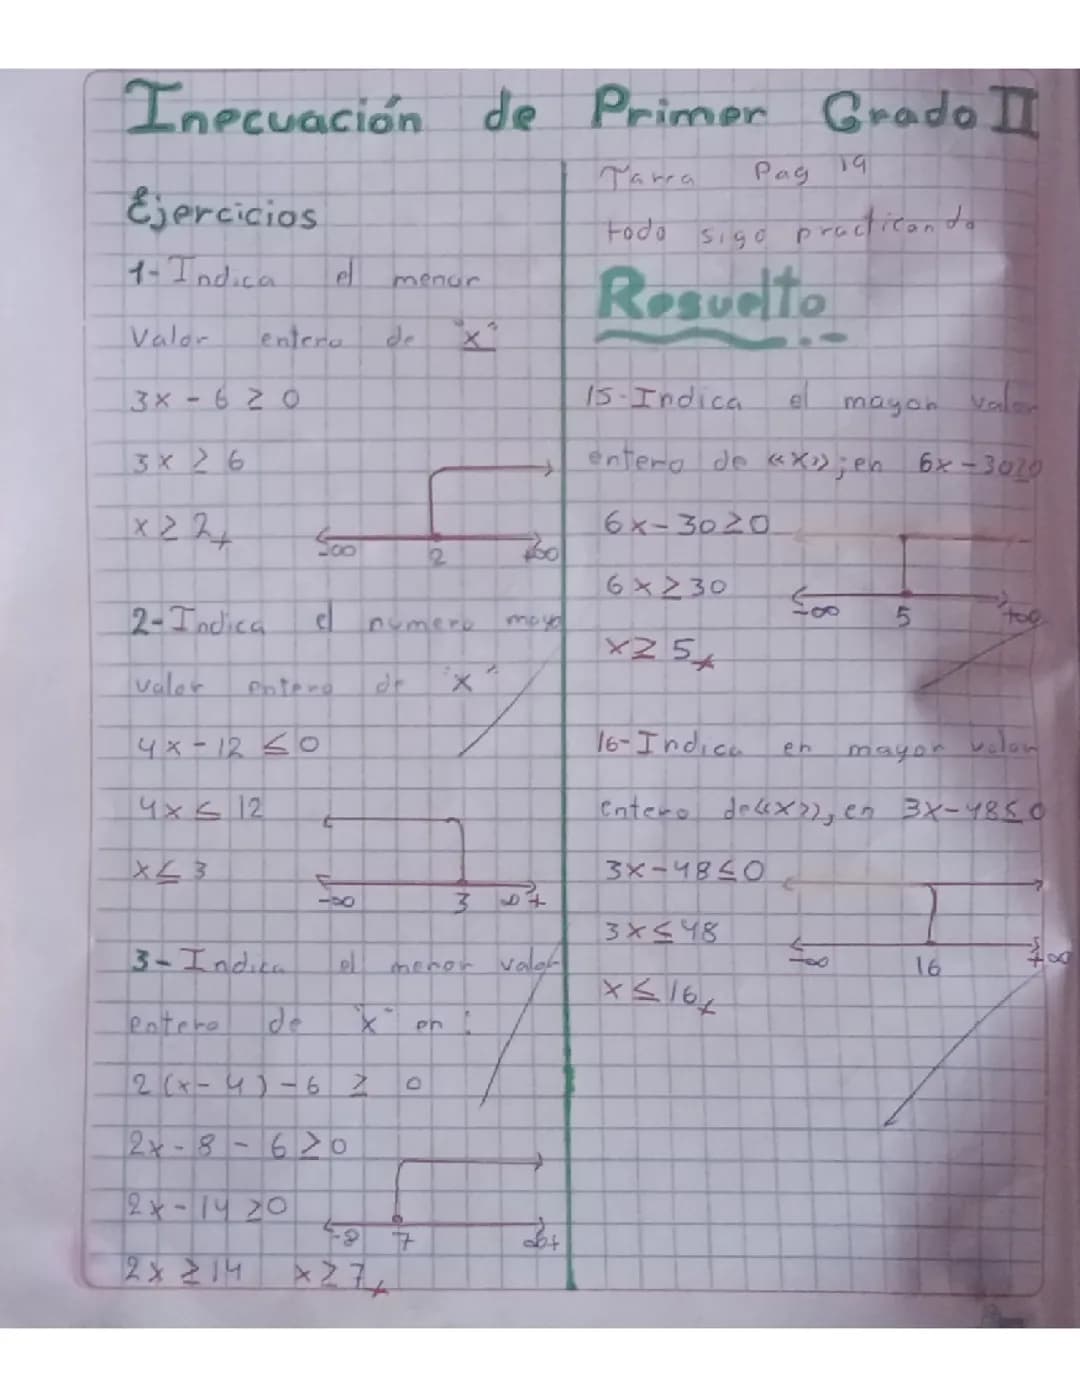 Inecuación de Primer Grado II
Ejercicios
1- Indica el menor
Valor entero de "x"
3x - 6 ≥ 0
3x ≥ 6
x ≥ 2
-∞ 2 +∞
2- Indica el numero mayo
valor entero de "x"
4x - 12 ≤ 0
4x ≤ 12
x ≤ 3
-∞ 3 ∞+
3- Indica el menor valor
entero de "x" en :
2(x - 4) - 6 ≥ 0
2x - 8 - 6 ≥ 0
2x - 14 ≥ 0
-∞ 7 ∞+
2x ≥ 14 x ≥ 7
Tarea Pag 19
todo sigo practicando
Resuelto
15- Indica el mayor valor
entero de «x»; en 6x - 30≥0
6x - 30 ≥ 0
6x ≥ 30
-∞ 5 +∞
x ≥ 5
16- Indica en mayor valor
entero de «x», en 3x - 48 ≤ 0
3x - 48 ≤ 0
3x ≤ 48
-∞ 16 +∞
x ≤ 16